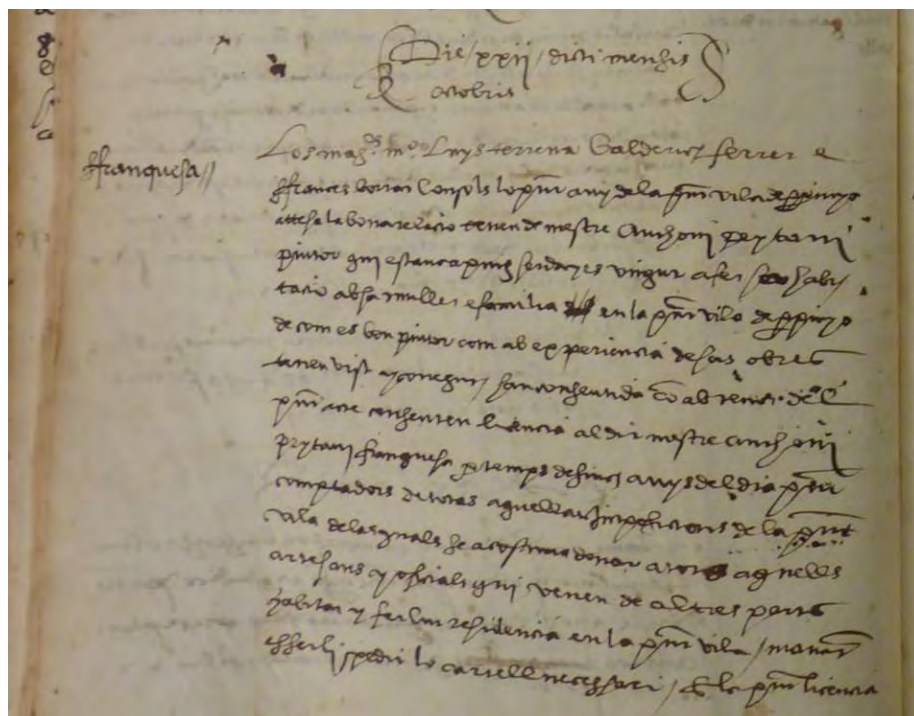 Die / xxii / dicti mensis
octobris
ffranquesa //
Los magchs mo Luys terrena Galderich ferrer e
ffrances borrar Consols lo pnt any dela pnt vila de ppinya
attesa la bona relacio tenen de mestre Anthoni peytavi
pintor qui estant a puig serda es vingut a fer sa habi
tacio ab sa muller e familia en la pnt vila de ppinya
de com es bon pintor com ab experiencia de sas obres
tenen vist y conegut / han consentida ab tenor del
pnt acte consenten licencia al dit mestre anthoni
peytavi franquesa p temps de sinch anys del dia pnt
comptadors de totas aquellas imposicions de la pnt
vila de las quals se acostuma donar a tots aquells
artesans y officials qui venen de altres parts
habitar y fer lur residencia en la pnt vila / manat
esser li spedit lo cartell necessari / E la pnt licencia